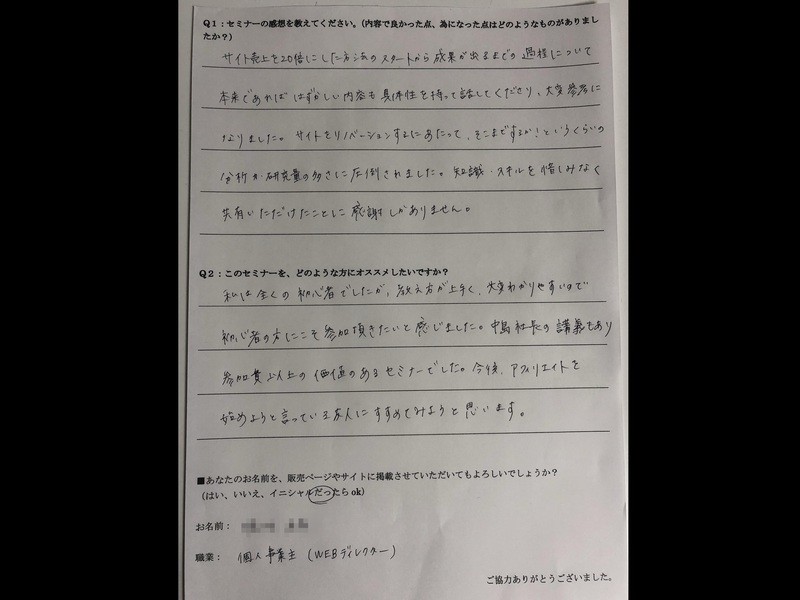 Q1：セミナーの感想を教えてください。(内容で良かった点、為になった点はどのようなものがありまし
たか？)
サイト売上を20倍にした方法のスタートから成果が出るまでの過程について
本来であれば はずかしい内容も具体性を持って話してくださり、大変参考に
なりました。サイトをリノベーションするにあたって、そこまでするか！というくらいの
分析や研究量の多さに圧倒されました。知識・スキルを惜しみなく
共有いただけたことに感謝しかありません。
Q2：このセミナーを、どのような方にオススメしたいですか？
私は全くの初心者でしたが、教え方が上手く、大変わかりやすいので
初心者の方にこそ参加頂きたいと感じました。中島社長の講義もあり
参加費以上の価値のあるセミナーでした。今後、アフィリエイトを
始めようと言っている友人にすすめてみようと思います。
■あなたのお名前を、販売ページやサイトに掲載させていただいてもよろしいでしょうか？
(はい、いいえ、イニシャルだったらok)
お名前：
職業： 個人事業主 (WEBディレクター)
ご協力ありがとうございました。